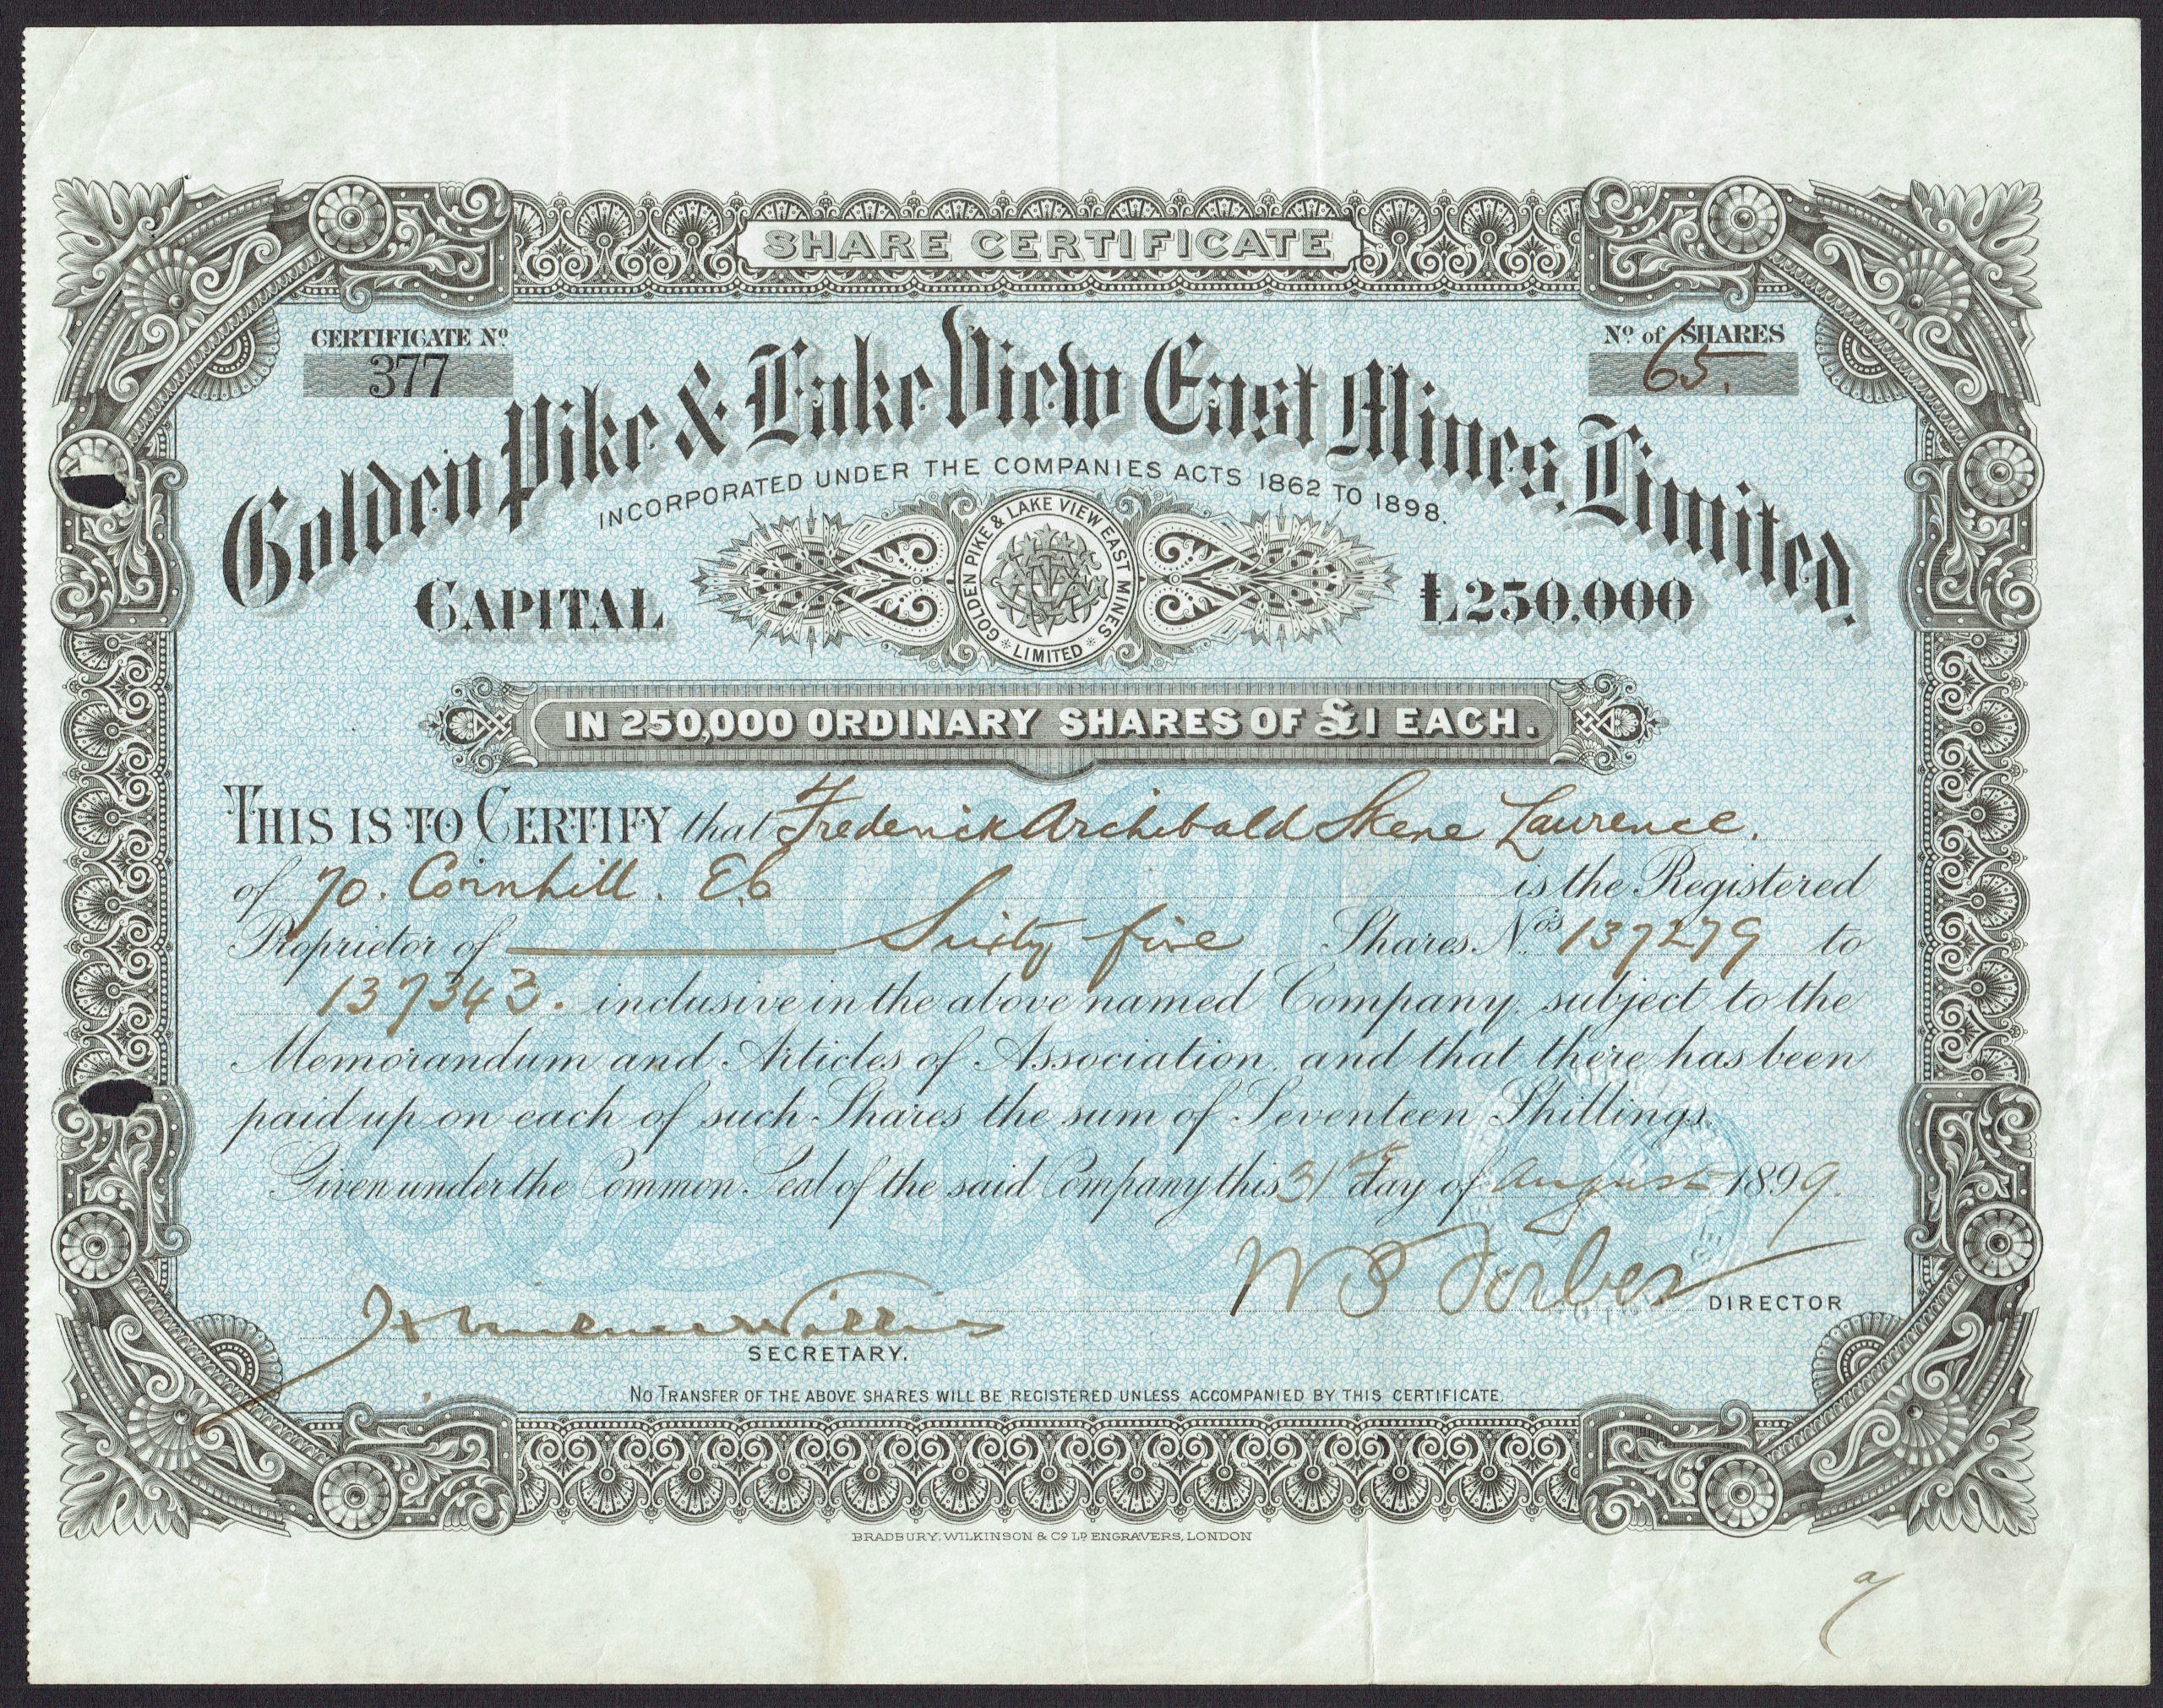 SHARE CERTIFICATE
CERTIFICATE Nº
377
Nº of SHARES
65.
Golden Pike & Lake View East Mines, Limited.
INCORPORATED UNDER THE COMPANIES ACTS 1862 TO 1898.
GOLDEN PIKE & LAKE VIEW EAST MINES
LIMITED
CAPITAL £250,000
IN 250,000 ORDINARY SHARES OF £1 EACH.
THIS IS TO CERTIFY that Frederick Archibald Skene Laurence.
of 70. Cornhill. E.C. is the Registered
Proprietor of Sixty five Shares Nos 137279 to
137343. inclusive in the above named Company, subject to the
Memorandum and Articles of Association, and that there has been
paid up on each of such Shares the sum of Seventeen Shillings.
Given under the Common Seal of the said Company this 31st day of August 1899.
W S Forbes
DIRECTOR
SECRETARY.
NO TRANSFER OF THE ABOVE SHARES WILL BE REGISTERED UNLESS ACCOMPANIED BY THIS CERTIFICATE.
BRADBURY, WILKINSON & Cº Lᴰ ENGRAVERS, LONDON